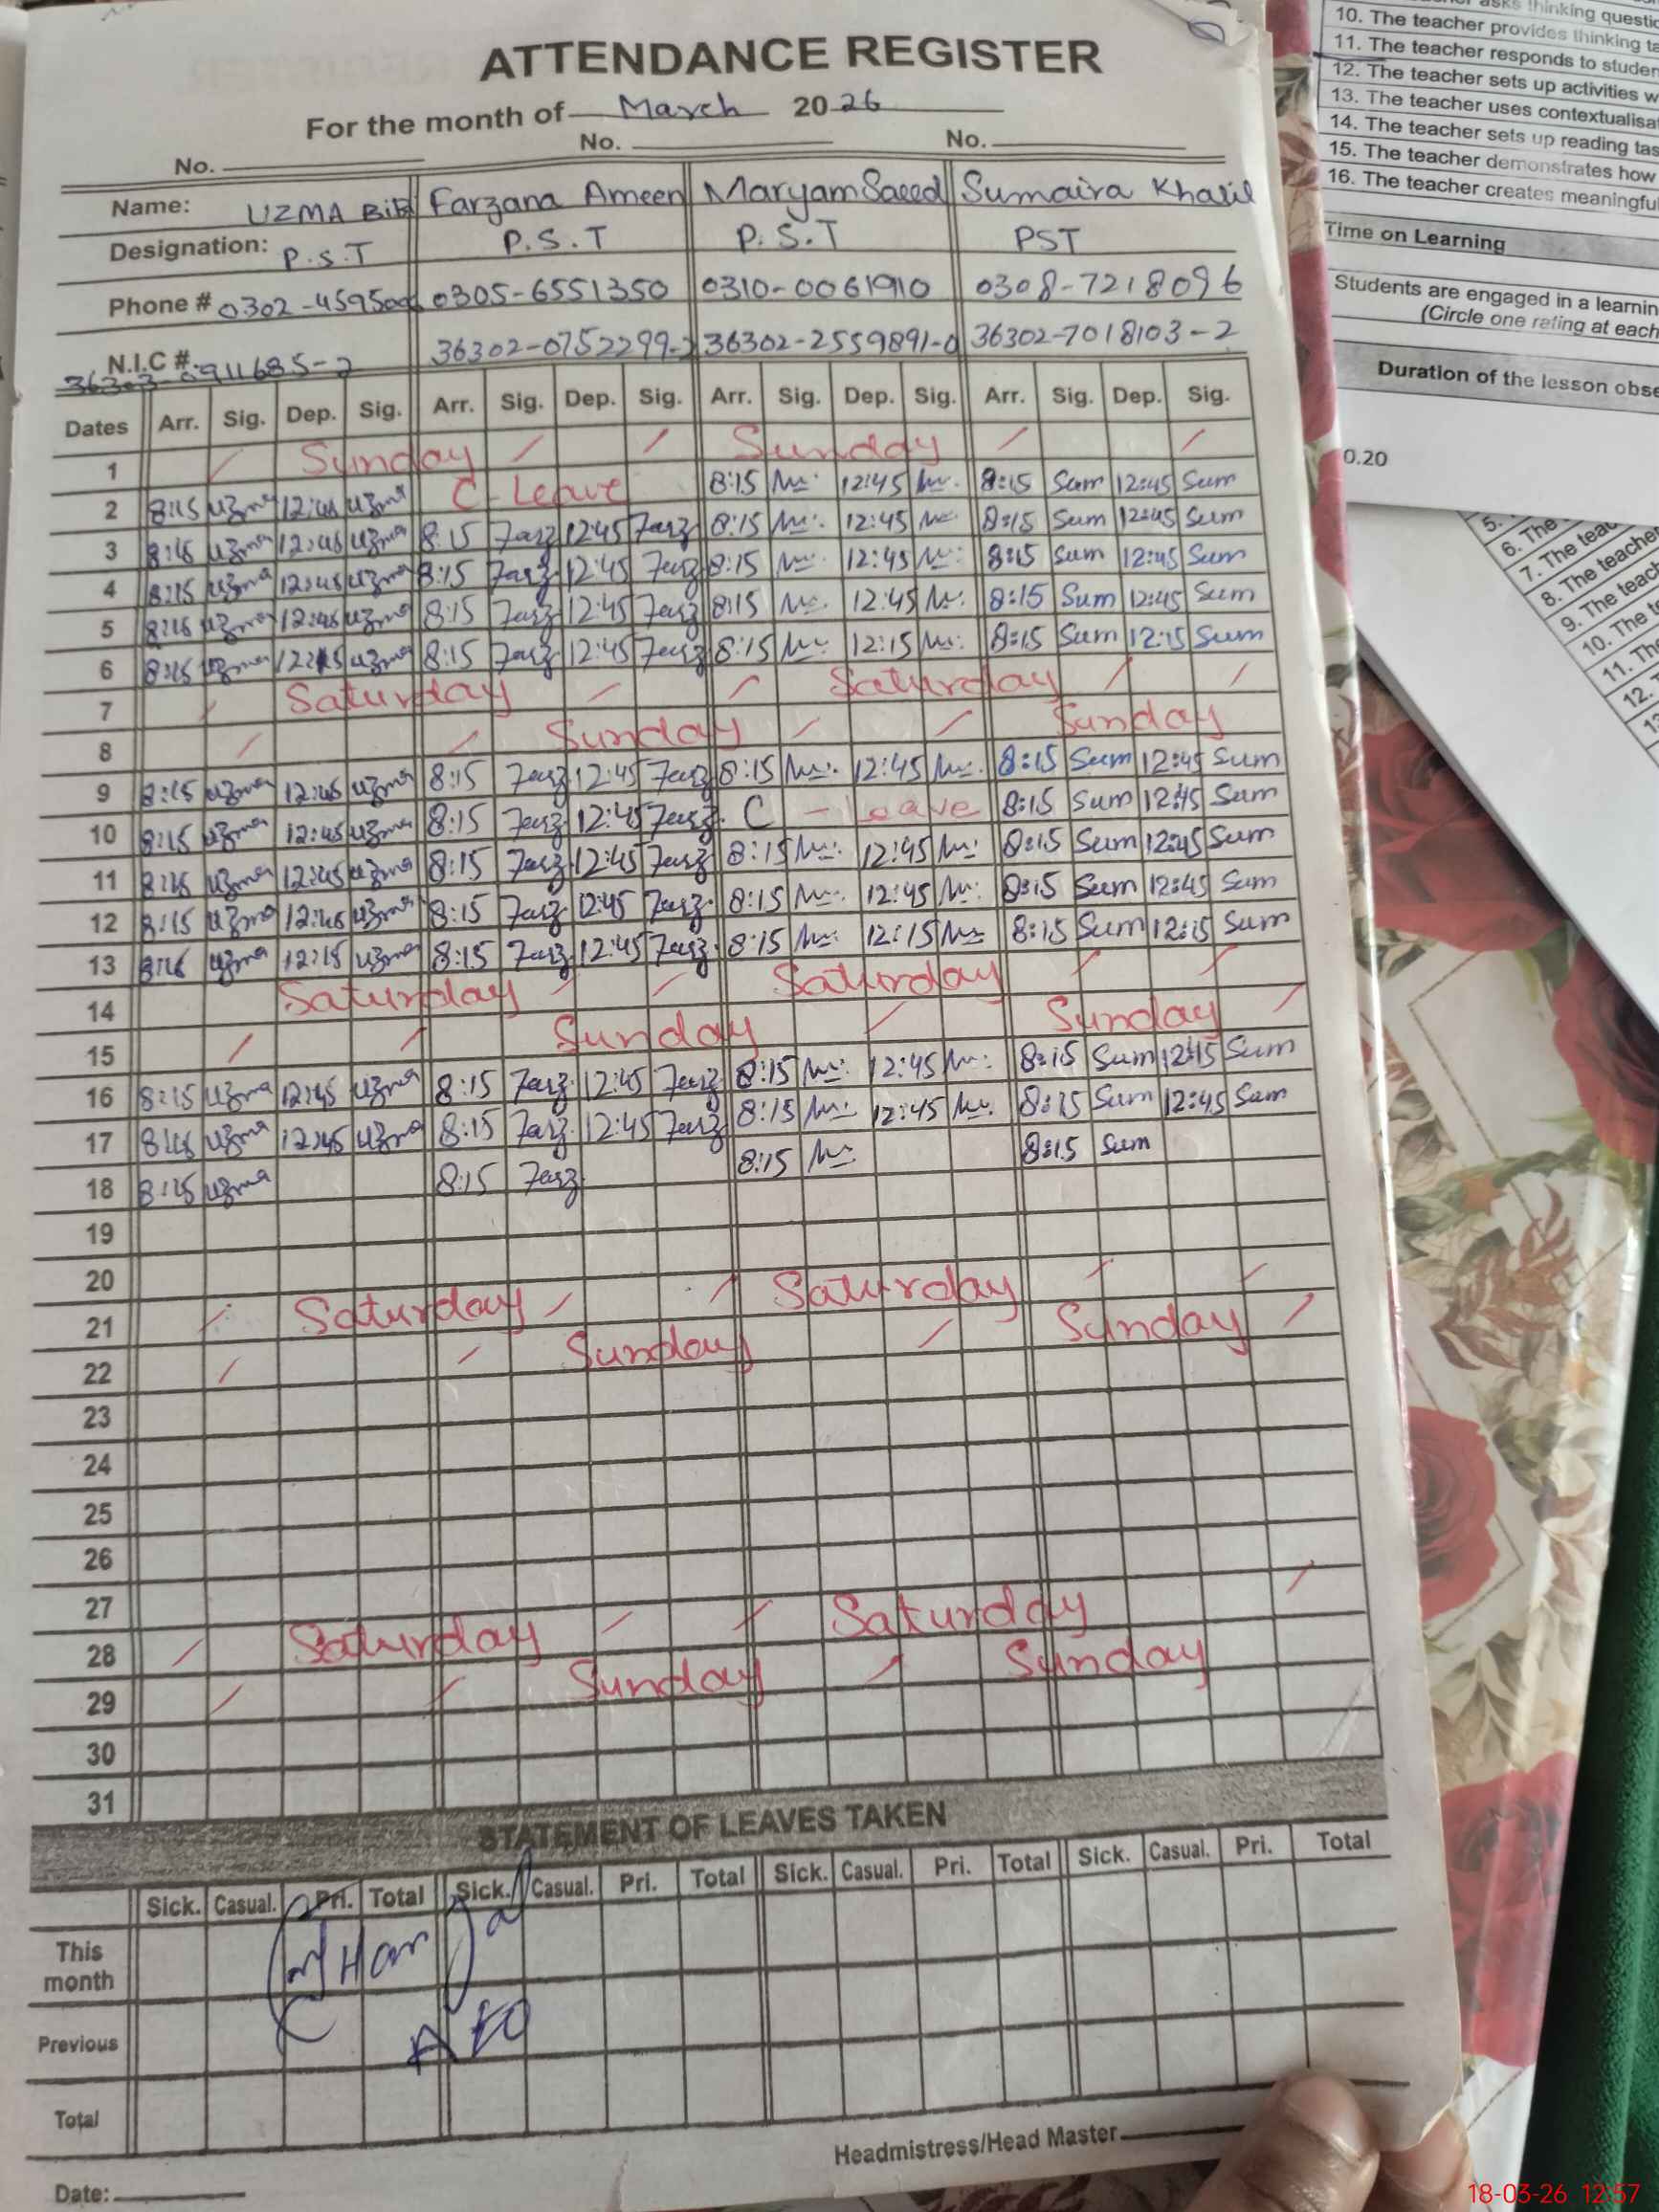 ATTENDANCE REGISTER
For the month of March 2026
No. No. No.
Name: UZMA BiBi Farzana Ameen Maryam Saeed Sumaira Khalil
Designation: P.S.T P.S.T P.S.T PST
Phone # 0302-459500 0305-6551350 0310-0061910 0308-7218096
N.I.C #. 36302-0752299-2 36302-2559891-0 36302-7018103-2
Dates Arr. Sig. Dep. Sig. Arr. Sig. Dep. Sig. Arr. Sig. Dep. Sig. Arr. Sig. Dep. Sig.
1 Sunday Sunday
2 8:15 uzma 12:45 uzma C-Leave 8:15 12:45 8:15 Sum 12:45 Sum
3 8:15 uzma 12:45 uzma 8:15 Farz 12:45 Farz 8:15 12:45 8:15 Sum 12:45 Sum
4 8:15 uzma 12:45 uzma 8:15 Farz 12:45 Farz 8:15 12:45 8:15 Sum 12:45 Sum
5 8:15 uzma 12:45 uzma 8:15 Farz 12:45 Farz 8:15 12:45 8:15 Sum 12:45 Sum
6 8:15 uzma uzma 8:15 Farz 12:45 Farz 8:15 12:15 8:15 Sum 12:15 Sum
7 Saturday Saturday
8 Sunday Sunday
9 8:15 uzma 12:45 uzma 8:15 Farz 12:45 Farz 8:15 12:45 8:15 Sum 12:45 Sum
10 8:15 uzma 12:45 uzma 8:15 Farz 12:45 Farz. C - Leave 8:15 Sum 12:45 Sum
11 8:15 uzma 12:45 uzma 8:15 Farz 12:45 Farz 8:15 12:45 8:15 Sum 12:45 Sum
12 8:15 uzma 12:45 uzma 8:15 Farz 12:45 Farz. 8:15 12:45 8:15 Sum 12:45 Sum
13 8:15 uzma 12:15 uzma 8:15 Farz 12:45 Farz. 8:15 12:15 8:15 Sum 12:15 Sum
14 Saturday Saturday
15 Sunday Sunday
16 8:15 uzma 12:45 uzma 8:15 Farz. 12:45 Farz 8:15 12:45 8:15 Sum 12:45 Sum
17 8:15 uzma 12:45 uzma 8:15 Farz. 12:45 Farz 8:15 12:45 8:15 Sum 12:45 Sum
18 8:15 uzma 8:15 Farz 8:15 8:15 Sum
19
20
21 Saturday Saturday
22 Sunday Sunday
23
24
25
26
27
28 Saturday Saturday
29 Sunday Sunday
30
31
STATEMENT OF LEAVES TAKEN
Sick. Casual. Pri. Total Sick. Casual. Pri. Total Sick. Casual. Pri. Total Sick. Casual. Pri. Total
This month
Previous
AEO
Total
Headmistress/Head Master
Date:
asks thinking
10. The teacher provides thinking
11. The teacher responds to
12. The teacher sets up activities
13. The teacher uses
14. The teacher sets up reading
15. The teacher demonstrates how
16. The teacher creates
Time on Learning
Students are engaged in a
(Circle one rating at each
Duration of the lesson
0.20
5.
6. The
7. The
8. The teacher
9. The
10. The
11. The
12.
18-03-26 12:57